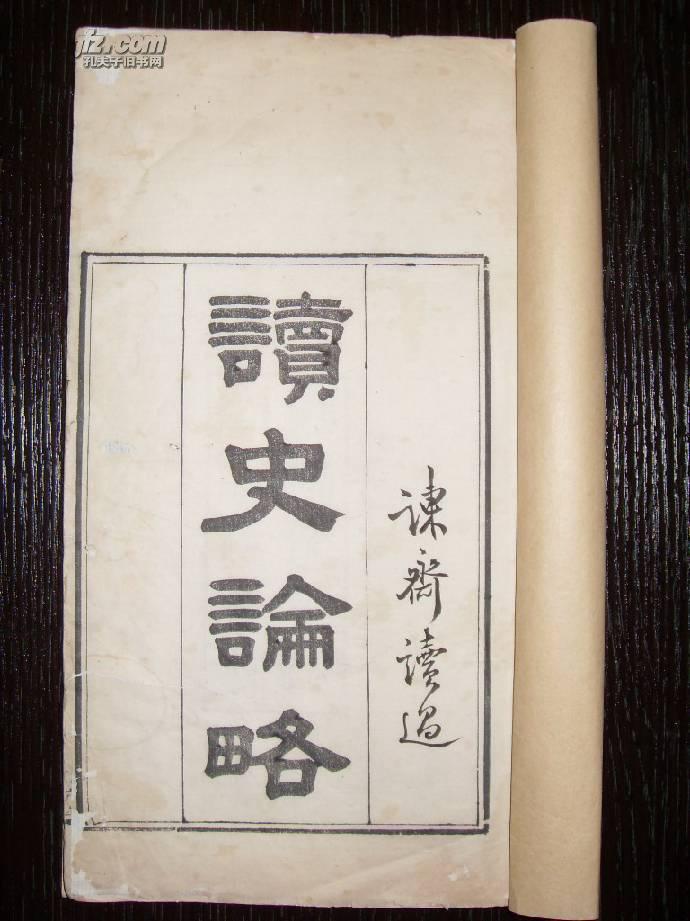 fz.com
孔夫子旧书网
讀史論略
諫齋讀過